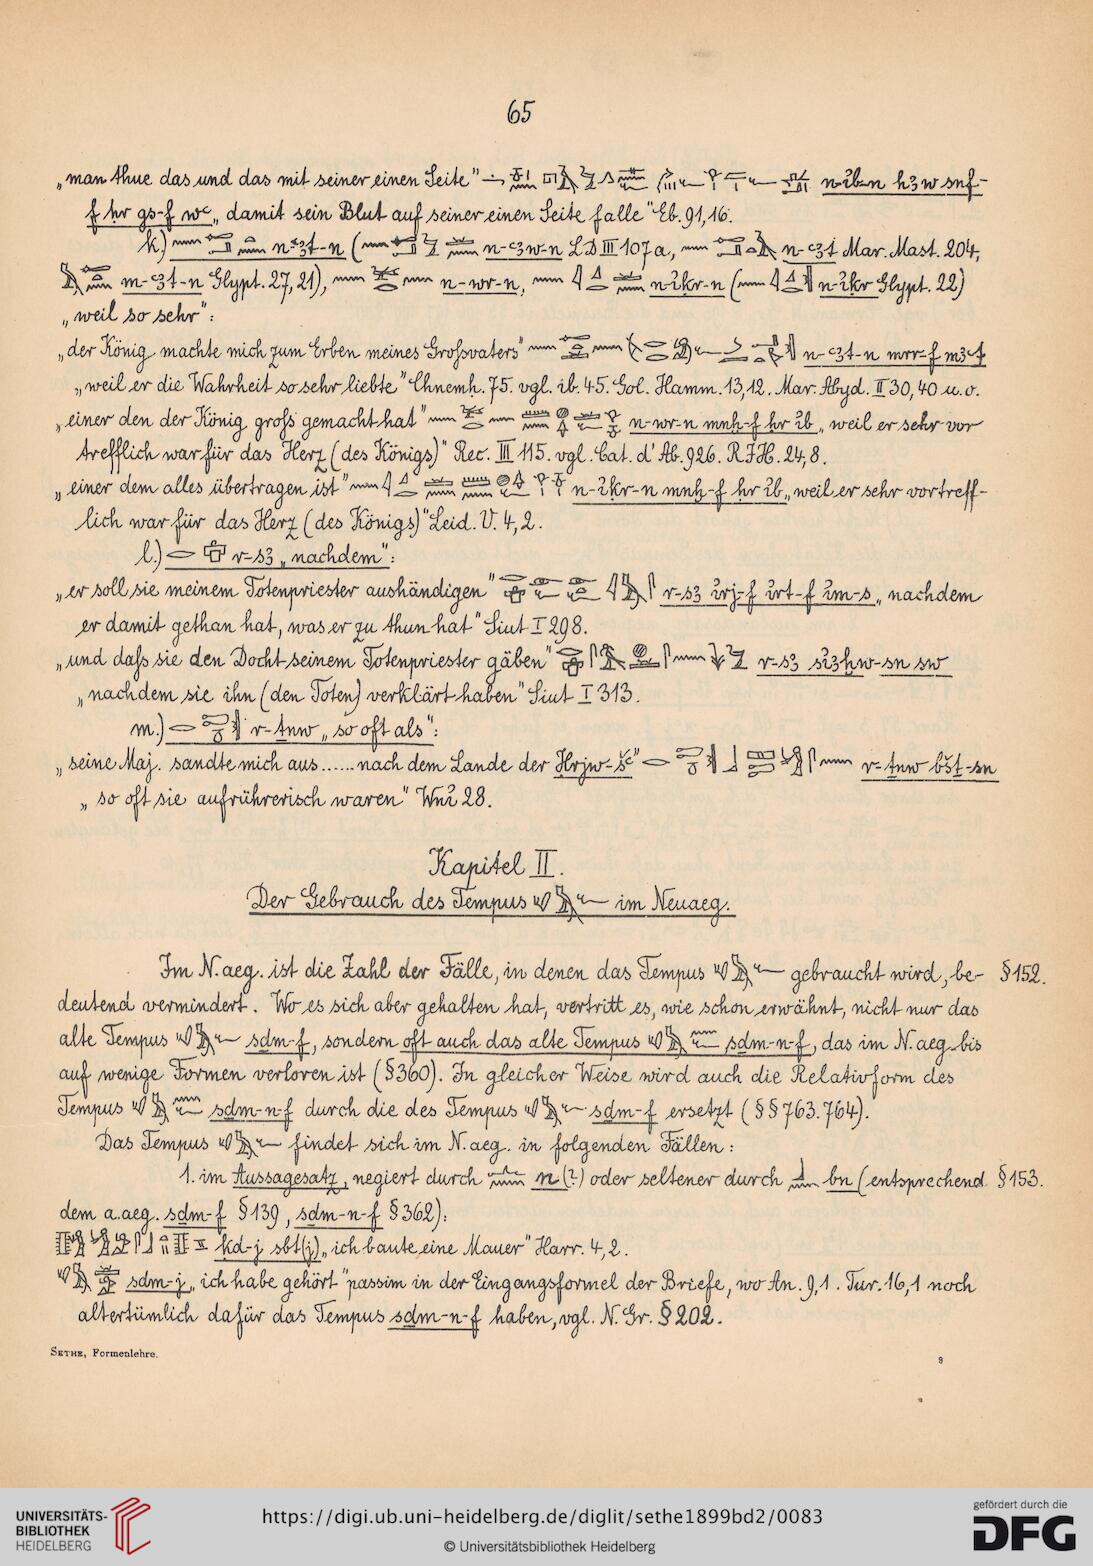 65
„man thue das und das mit seiner einen Seite" n-ỉb-n hȝw snf-
f ḥr gs-f wꜥ „damit sein Blut auf seiner einen Seite falle" Eb. 91,16.
k) n-ꜥȝt-n ( n-ꜥȝw-n LD III 107a, n-ꜥȝt Mar. Mast. 204,
m-ꜥȝt-n Glypt. 27,21), n-wr-n, n-ỉḳr-n ( n-ỉḳr Glypt. 22)
„weil so sehr":
„der König machte mich zum Erben meines Großvaters" n-ꜥȝt-n mrr-f mȝꜥt
„weil er die Wahrheit so sehr liebte" Chnemh. 75. vgl. ib. 45. Gol. Hamm. 13,12. Mar. Abyd. II 30, 40 u. o.
„einer den der König groß gemacht hat" n-wr-n mnḫ-f ḥr ỉb „weil er sehr vor
trefflich war für das Herz (des Königs)" Rec. III 115. vgl. Cat. d'Ab. 926. RIH. 24,8.
„einer dem alles übertragen ist" n-ỉḳr-n mnḫ-f ḥr ỉb „weil er sehr vortreff-
lich war für das Herz (des Königs)" Leid. V. 4,2.
l.) r-sȝ „nachdem":
„er soll sie meinem Totenpriester aushändigen" r-sȝ ỉrj-f ỉrt-f ỉm-s „nachdem
er damit gethan hat, was er zu thun hat" Siut I 298.
„und daß sie den Docht seinem Totenpriester gäben" r-sȝ sỉȝḫw-sn sw
„nachdem sie ihn (den Toten) verklärt haben" Siut I 313.
m.) r-ṯnw „so oft als":
„seine Maj. sandte mich aus...... nach dem Lande der Ḥrjw-šꜥ" r-ṯnw bšṯ-sn
„so oft sie aufrührerisch waren" Wnỉ 28.
Kapitel II.
Der Gebrauch des Tempus im Neuaeg.
Im N.aeg. ist die Zahl der Fälle, in denen das Tempus gebraucht wird, be- §152.
deutend vermindert. Wo es sich aber gehalten hat, vertritt es, wie schon erwähnt, nicht nur das
alte Tempus sḏm-f, sondern oft auch das alte Tempus sḏm-n-f, das im N.aeg. bis
auf wenige Formen verloren ist (§360). In gleicher Weise wird auch die Relativform des
Tempus sḏm-n-f durch die des Tempus sḏm-f ersetzt (§§ 763. 764).
Das Tempus findet sich im N.aeg. in folgenden Fällen:
1. im Aussagesatz, negiert durch n(?) oder seltener durch bn (entsprechend §153.
dem a.aeg. sḏm-f §139, sḏm-n-f §362):
ḳd-j sbt(j) „ich baute eine Mauer" Harr. 4,2.
sḏm-j „ich habe gehört" passim in der Eingangsformel der Briefe, wo An. 9,1. Tur. 16,1 noch
altertümlich dafür das Tempus sḏm-n-f haben, vgl. N. Gr. §202.
SETHE, Formenlehre.
9
UNIVERSITÄTS-
BIBLIOTHEK
HEIDELBERG
https://digi.ub.uni-heidelberg.de/diglit/sethe1899bd2/0083
© Universitätsbibliothek Heidelberg
gefördert durch die
DFG